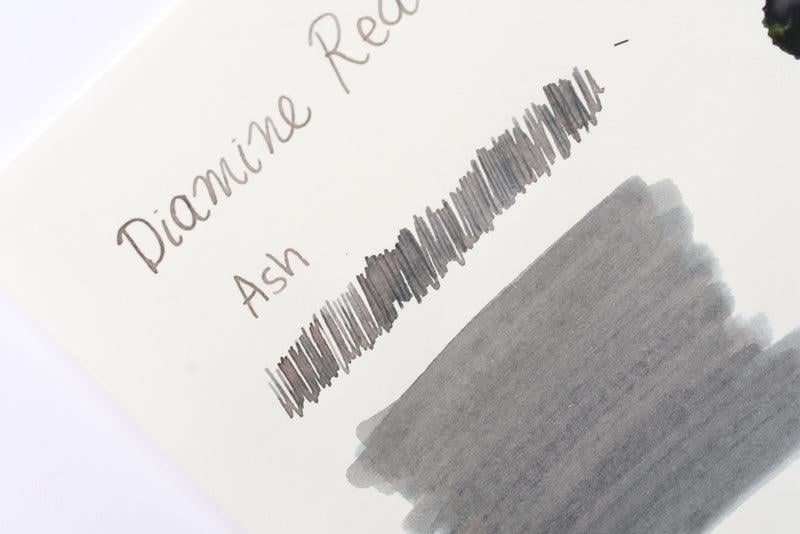 Diamine Red
Ash